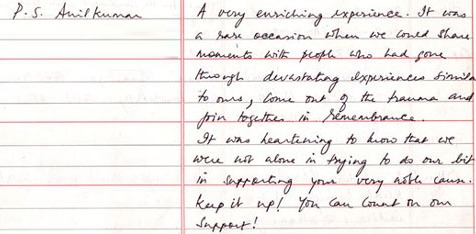 P.S. Anilkumar
A very enriching experience. It was
a rare occasion when we could share
moments with people who had gone
through devastating experiences similar
to ours, come out of the trauma and
join together in remembrance.
It was heartening to know that we
were not alone in trying to do our bit
in supporting your very noble cause.
Keep it up! You can count on our
support!